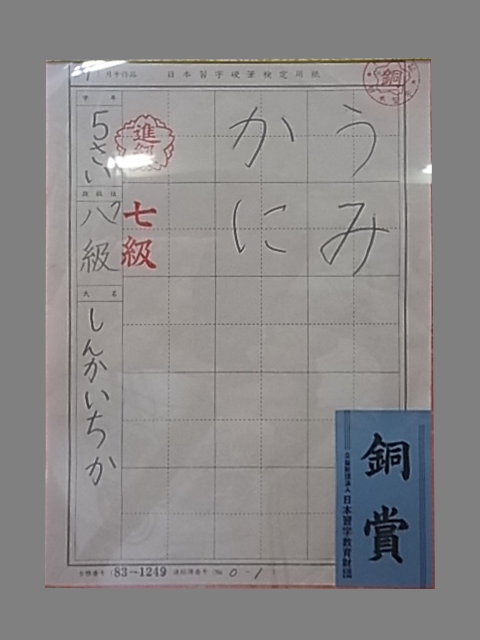 月予作品 日本習字硬筆検定用紙
銅
うみ
かに
進級
七級
学年
5さい
段級位
八級
氏名
しんかいちか
83-1249
0-1
銅賞
公益財団法人 日本習字教育財団